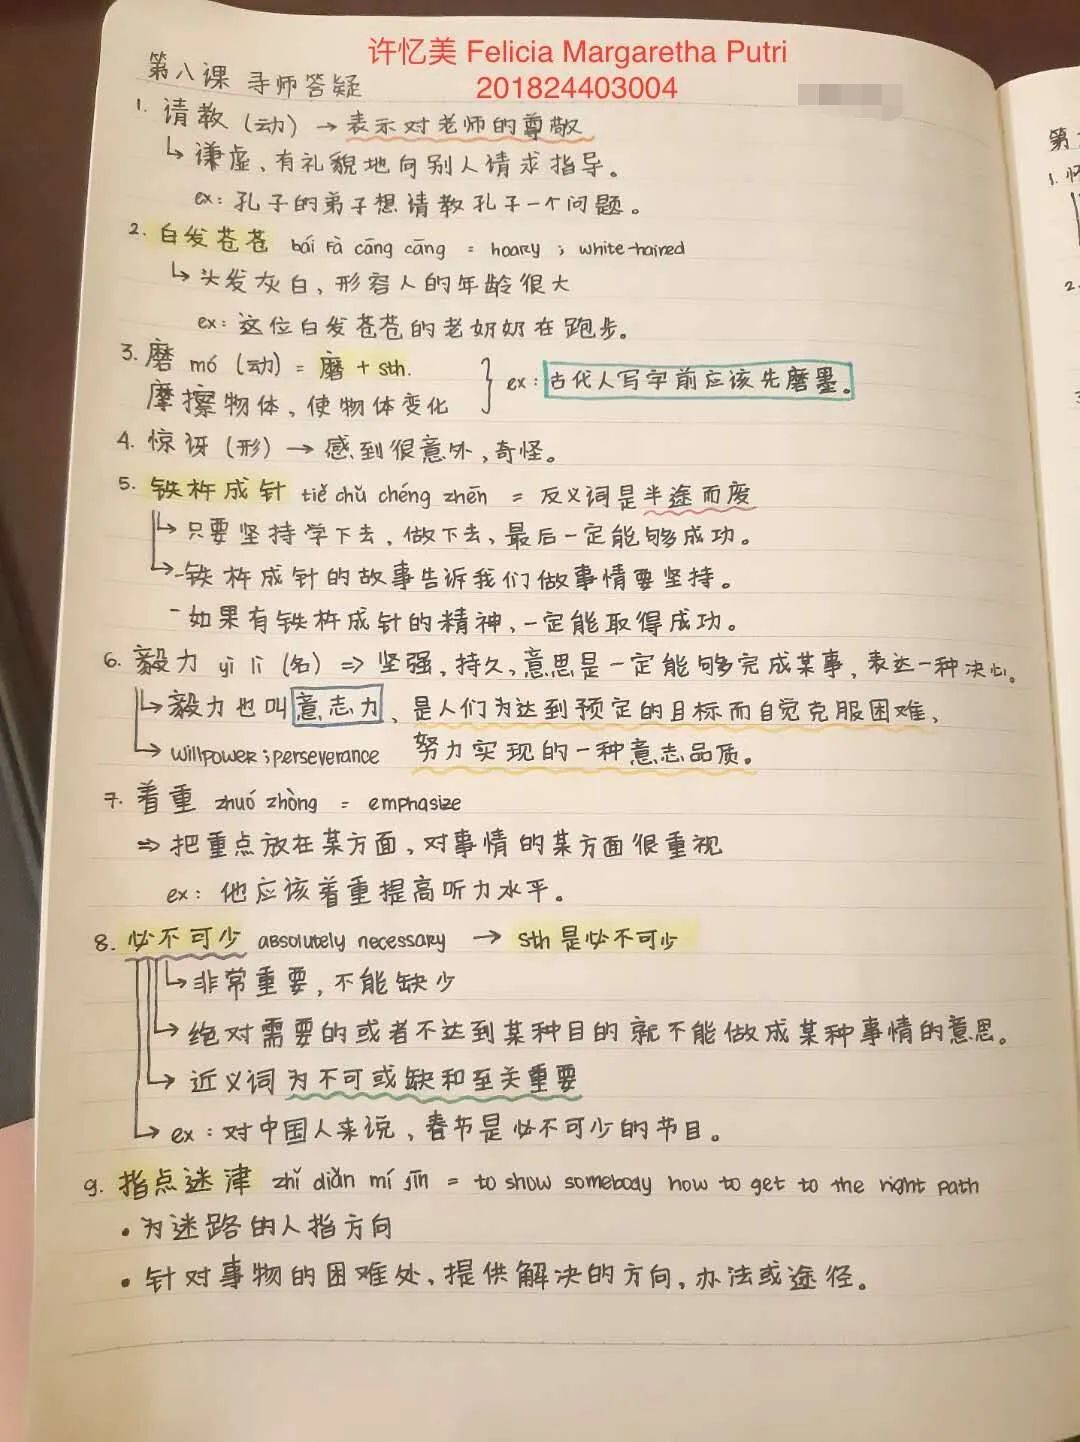 许忆美 Felicia Margaretha Putri
201824403004
第八课 寻师答疑
1. 请教 (动) → 表示对老师的尊敬
↳ 谦虚、有礼貌地向别人请求指导。
ex: 孔子的弟子想请教孔子一个问题。
2. 白发苍苍 bái fà cāng cāng = hoary ; white-haired
↳ 头发灰白、形容人的年龄很大
ex: 这位白发苍苍的老奶奶在跑步。
3. 磨 mó (动) = 磨 + sth.
摩擦物体、使物体变化 } ex: 古代人写字前应该先磨墨。
4. 惊讶 (形) → 感到很意外,奇怪。
5. 铁杵成针 tiě chǔ chéng zhēn = 反义词是半途而废
↳ 只要坚持学下去,做下去、最后一定能够成功。
↳ -铁杵成针的故事告诉我们做事情要坚持。
- 如果有铁杵成针的精神、一定能取得成功。
6. 毅力 yì lì (名) => 坚强,持久,意思是一定能够完成某事,表达一种决心。
↳ 毅力也叫意志力、是人们为达到预定的目标而自觉克服困难、
↳ willpower ; perseverance 努力实现的一种意志品质。
7. 着重 zhuó zhòng = emphasize
⇒ 把重点放在某方面,对事情的某方面很重视
ex: 他应该着重提高听力水平。
8. 必不可少 absolutely necessary → sth 是必不可少
↳ 非常重要,不能缺少
↳ 绝对需要的或者不达到某种目的就不能做成某种事情的意思。
↳ 近义词为不可或缺和至关重要
↳ ex: 对中国人来说,春节是必不可少的节目。
9. 指点迷津 zhǐ diǎn mí jīn = to show somebody how to get to the right path
• 为迷路的人指方向
• 针对事物的困难处、提供解决的方向,办法或途径。
第
1. 怀
2.